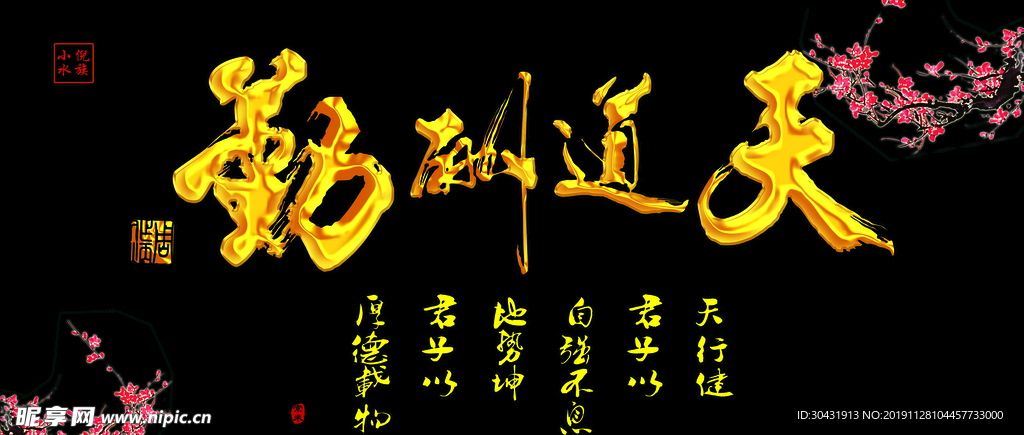 天道酬勤
天行健
君子以
自强不息
地势坤
君子以
厚德載物
倪族
小水
昵享网 www.nipic.cn
ID:30431913 NO:20191128104457733000